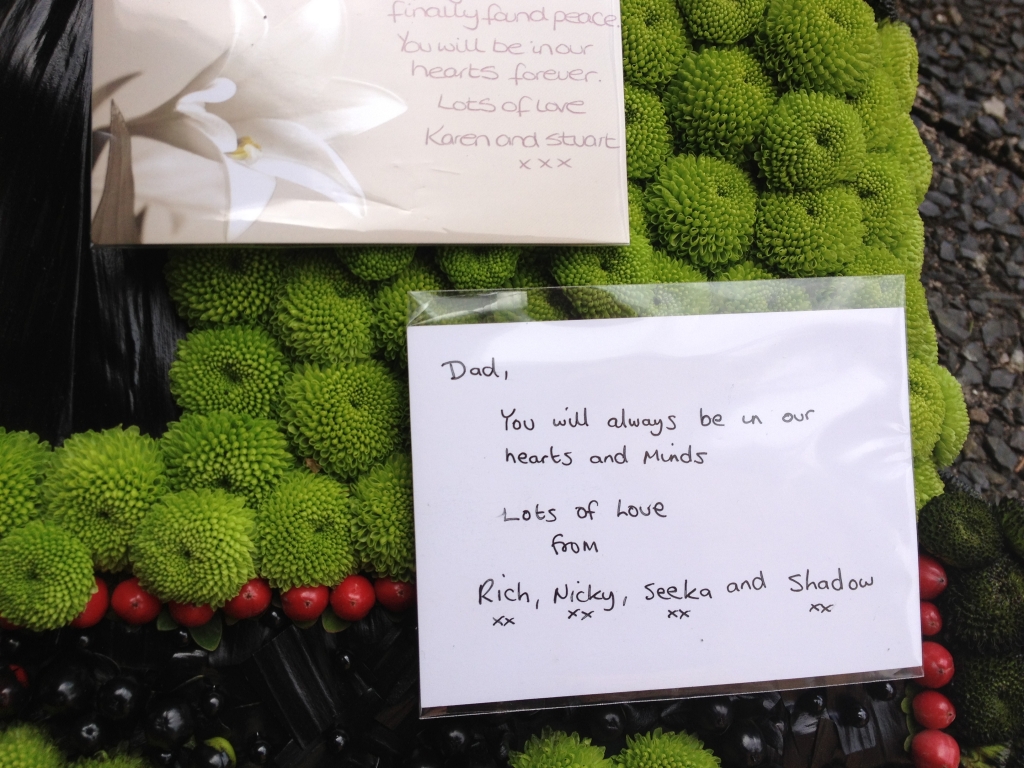 finally found peace
You will be in our
hearts forever.
Lots of Love
Karen and Stuart
x x x
Dad,
You will always be in our
hearts and Minds
Lots of Love
from
Rich, Nicky, Seeka and Shadow
xx xx xx xx